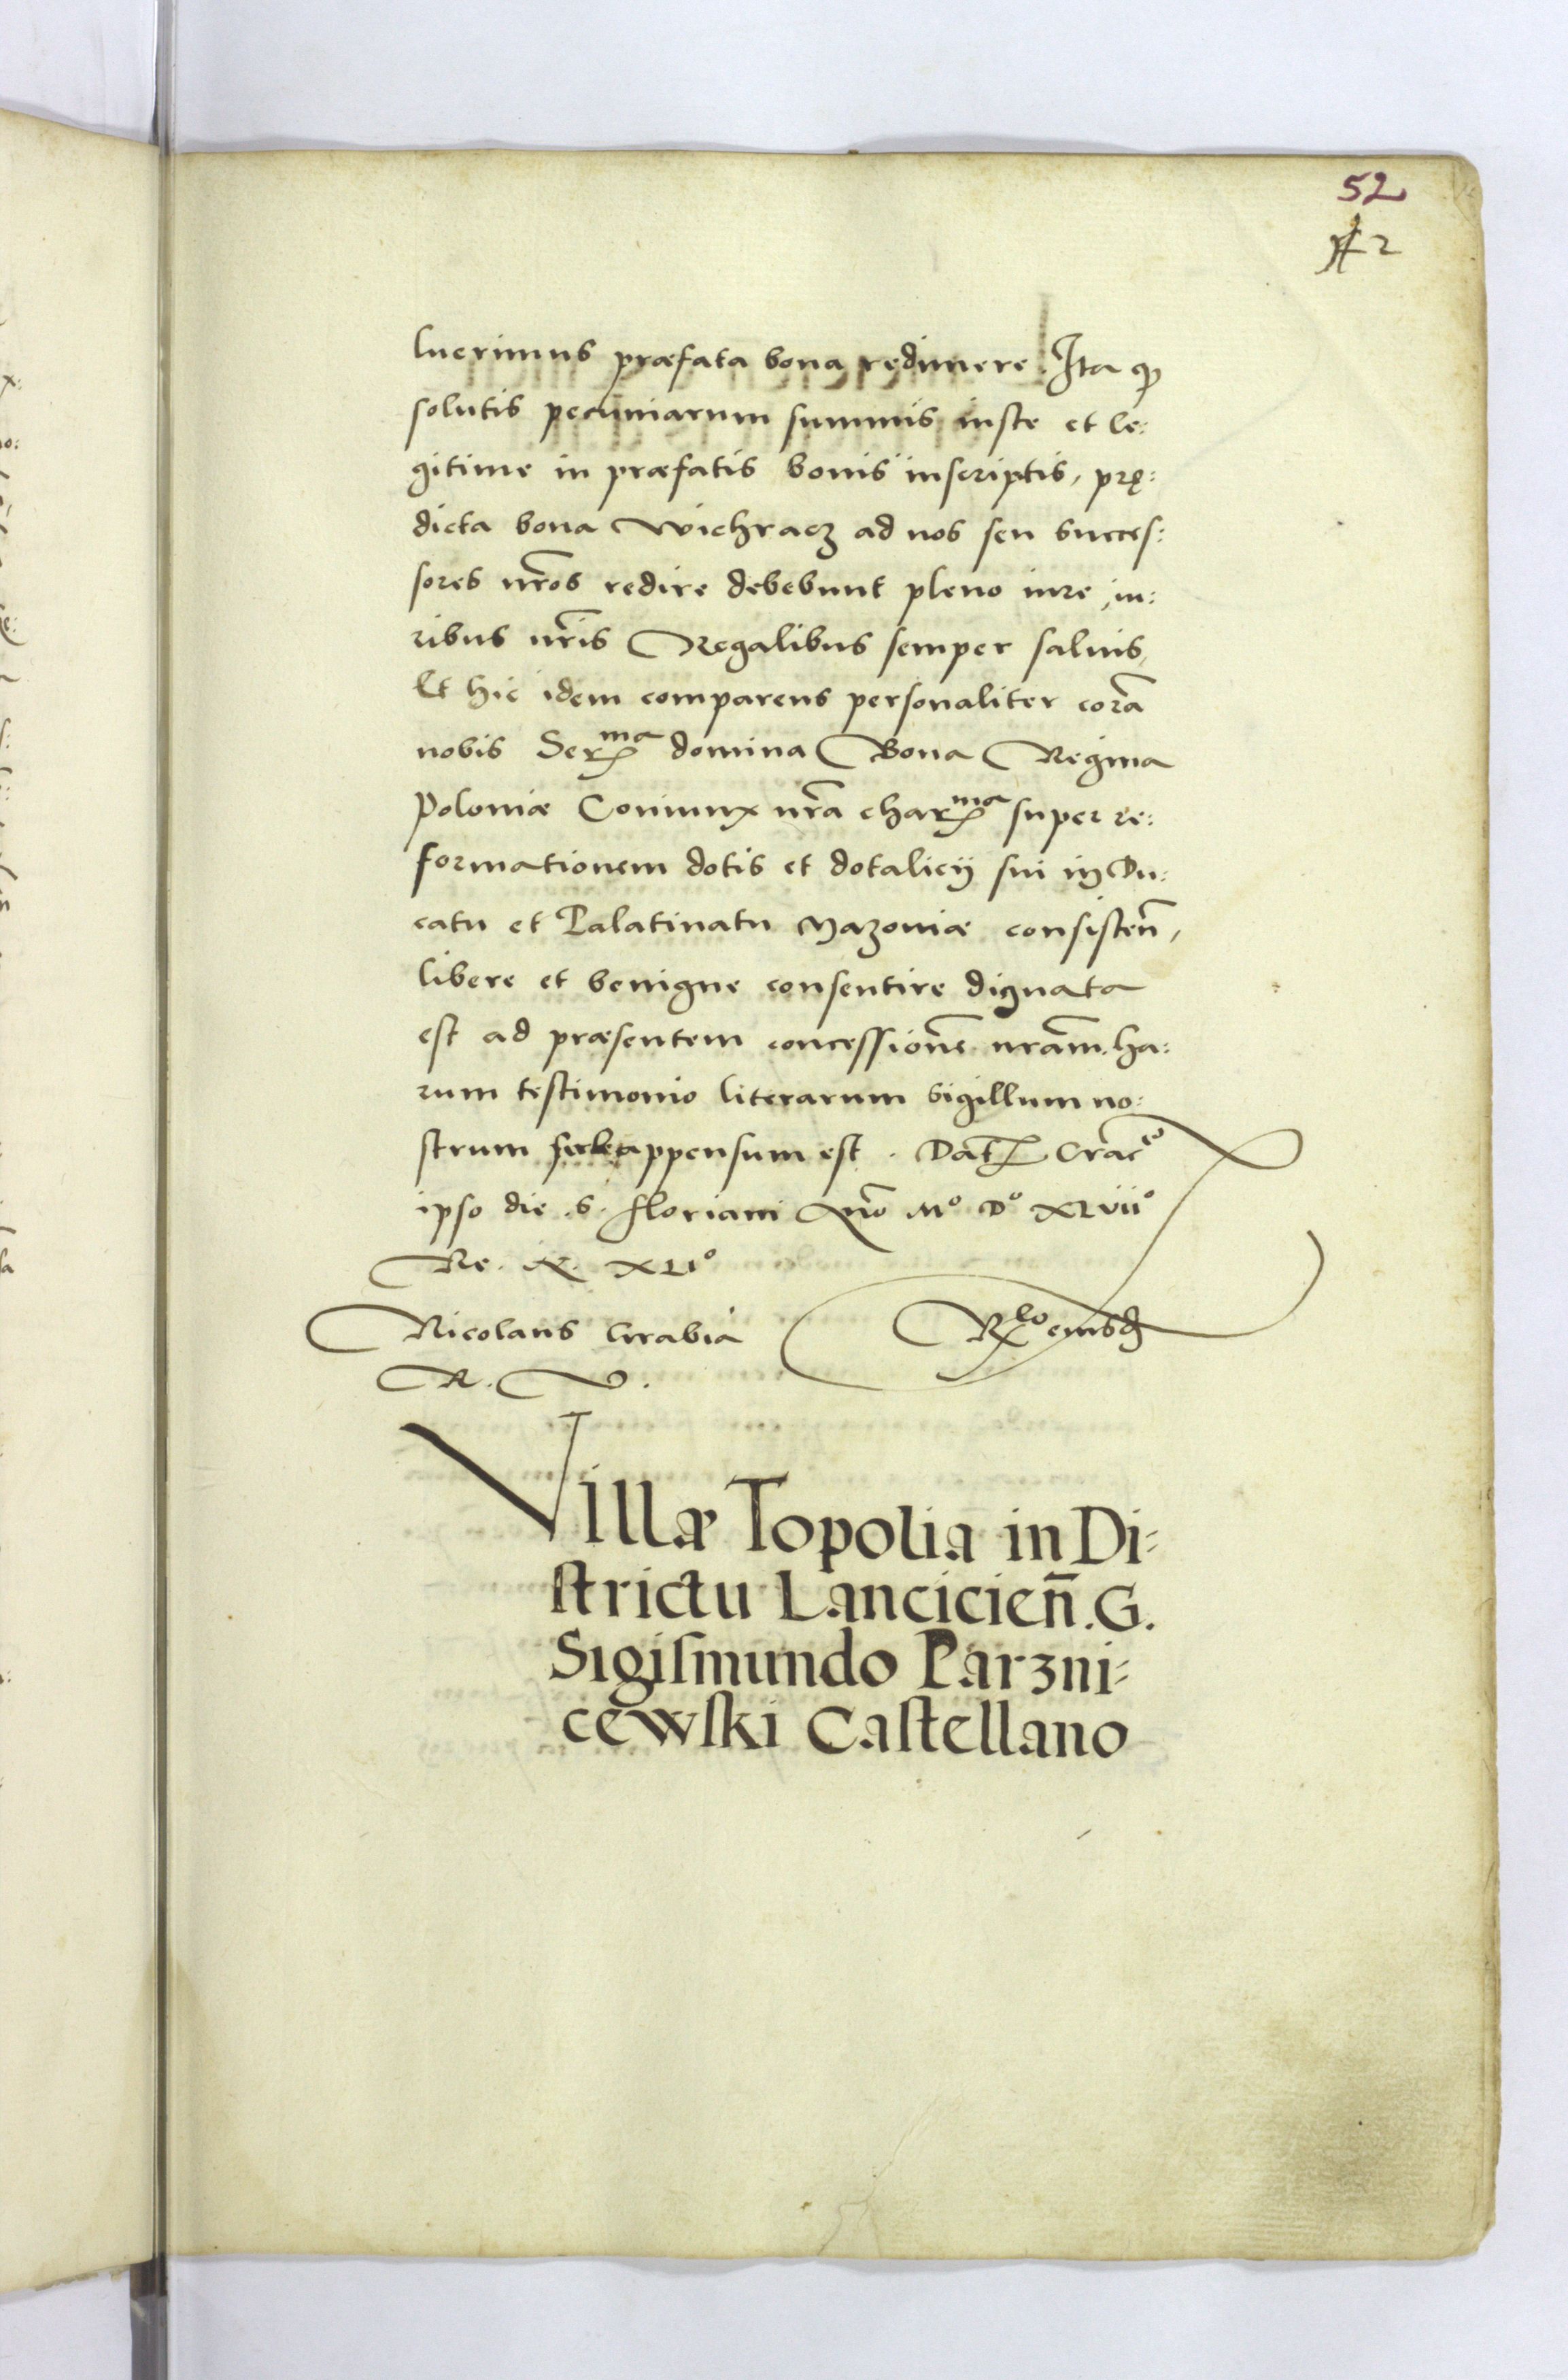 52
luerimus præfata bona redimere. Ita q
solutis pecuniarum summis iuste et le:
gitime in præfatis bonis inscriptis, prę:
dicta bona Wichracz ad nos seu succes:
sores nr̃os redire debebunt pleno iure, iu:
ribus nr̃is Regalibus semper saluis,
Et hic idem comparens personaliter corã
nobis Ser^ma domina Bona Regina
Poloniæ Coniunx nr̃a char^ma super re:
formationem dotis et dotalicij sui in Du:
catu et Palatinatu Mazoviæ consisteñ,
libere et benigne consentire dignata
est ad præsentem concessionẽ nrãm. ha:
rum testimonio literarum sigillum no:
strum appensum est. Dat Crac^o
ipso die .S. floriani Anno M° D° XLVII°
Re. N. XLI°
Nicolaus Grabia R^lo eiusd
R. V.
Villæ Topolia in Di=
strictu Lancicieñ. G.
Sigismundo Parzni=
cewski Castellano